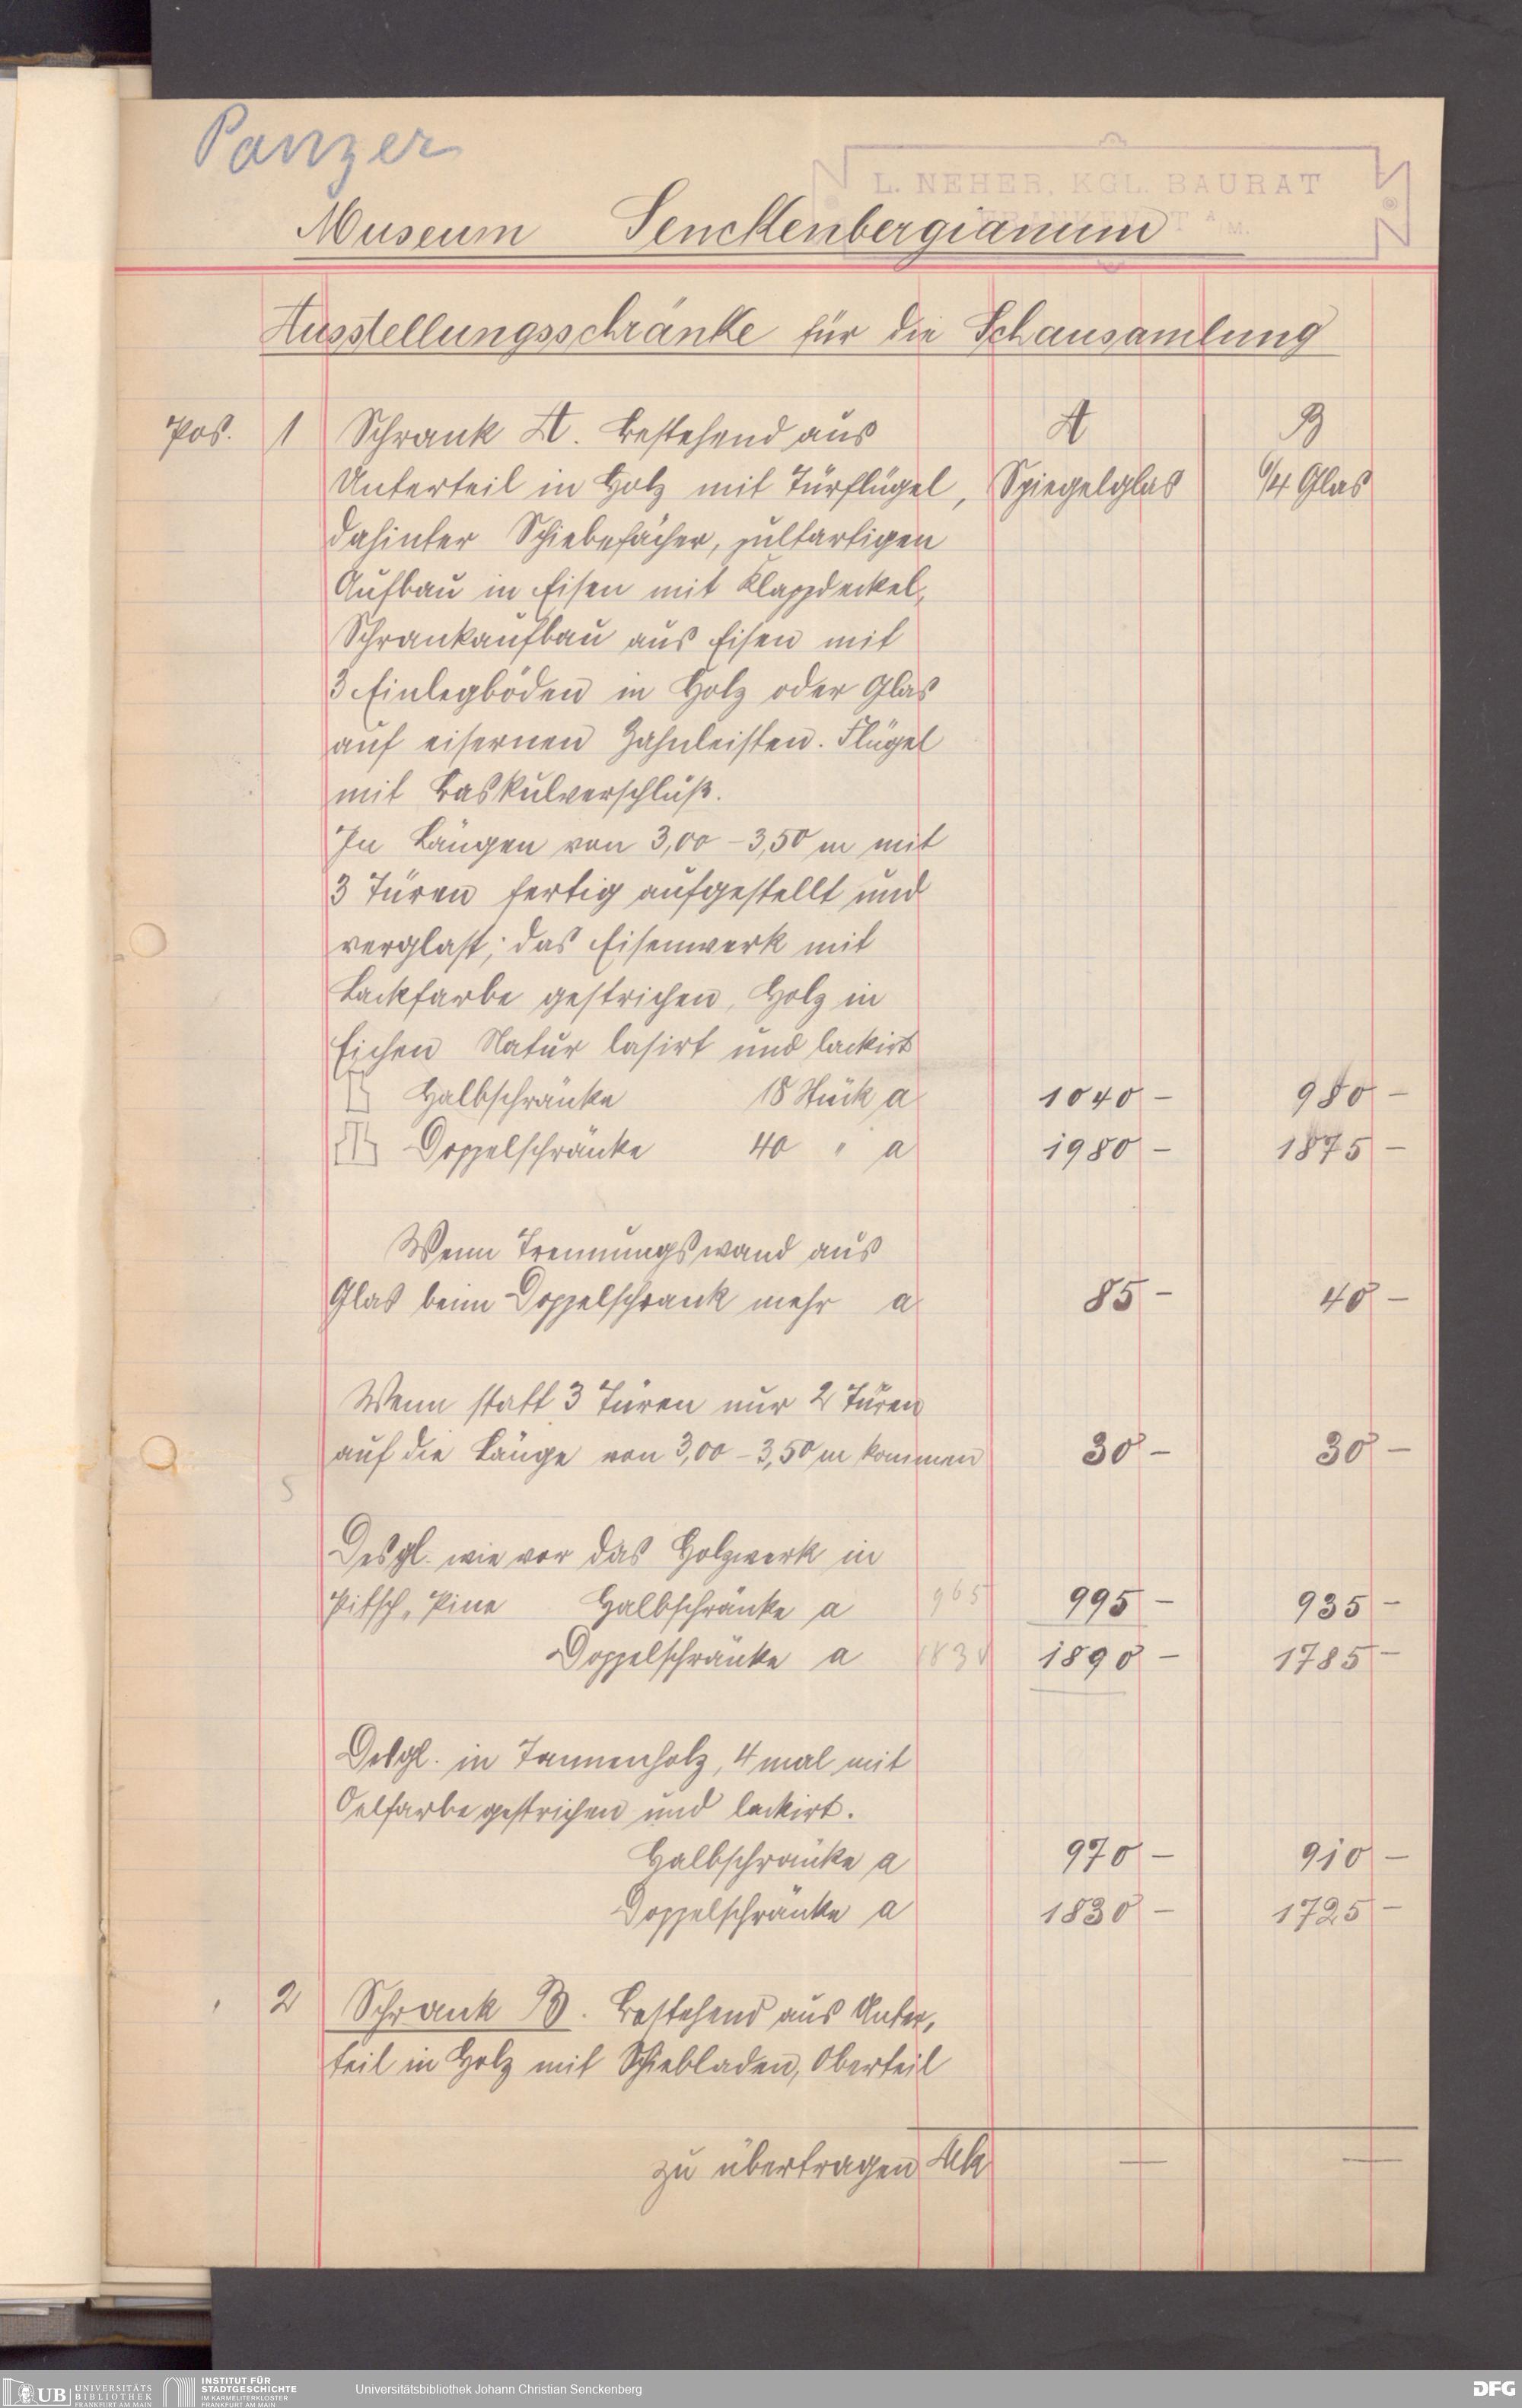 Panzer
L. NEHER, KGL. BAURAT
FRANKFURT A/M.
Museum Senckenbergianum
Ausstellungsschränke für die Schausamlung
Pos. 1 Schrank A. Bestehend aus A B
Unterteil in Holz mit Türflügel, Spiegelglas 6/4 Glas
dahinter Schiebefächer, pultartigen
Aufbau in Eisen mit Klappdeckel,
Schrankaufbau aus Eisen mit
3 Einlegböden in Holz oder Glas
auf eisernen Zahnleisten. Flügel
mit Baskulverschluß.
In Längen von 3,00 – 3,50 m mit
3 Türen fertig aufgestellt und
verglast; das Eisenwerk mit
Lackfarbe gestrichen, Holz in
Eichen Natur lasirt und lackirt
Halbschränke 18 Stück a 1040 – 980 –
Doppelschränke 40 " a 1980 – 1875 –
Wenn Trennungswand aus
Glas beim Doppelschrank mehr a 85 – 40 –
Wenn statt 3 Türen nur 2 Türen
auf die Länge von 3,00 – 3,50 m kommen 30 – 30 –
Desgl. wie vor das Holzwerk in
Pitsch, Pine Halbschränke a 965 995 – 935 –
Doppelschränke a 1830 1890 – 1785 –
Desgl. in Tannenholz, 4 mal mit
Oelfarbe gestrichen und lackirt.
Halbschränke a 970 – 910 –
Doppelschränke a 1830 – 1725 –
2 Schrank B. Bestehend aus Unter,
teil in Holz mit Schiebladen, Oberteil
zu übertragen Mk — —
UB UNIVERSITÄTS
BIBLIOTHEK
FRANKFURT AM MAIN
INSTITUT FÜR
STADTGESCHICHTE
IM KARMELITERKLOSTER
FRANKFURT AM MAIN
Universitätsbibliothek Johann Christian Senckenberg
DFG